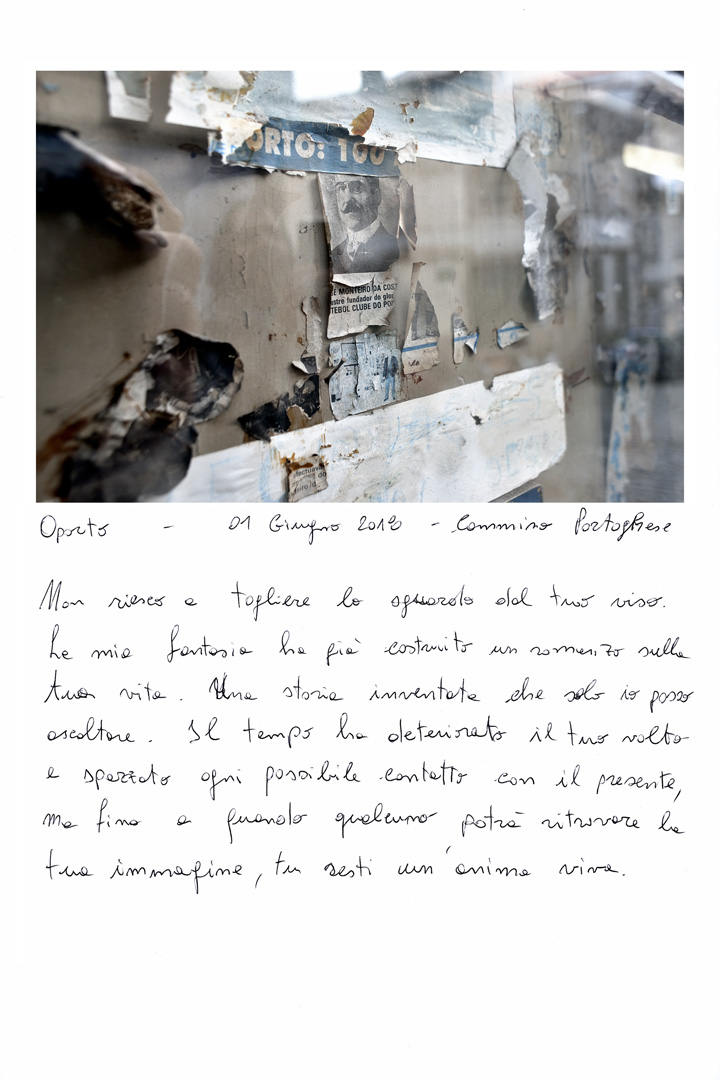 ORTO: 100
É MONTEIRO DA COST
ustre fundador do glor
TEBOL CLUBE DO POR
Oporto - 01 Giugno 2018 - Cammino Portoghese
Non riesco a togliere lo sguardo dal tuo viso.
La mia fantasia ha già costruito un romanzo sulla
tua vita. Una storia inventata che solo io posso
ascoltare. Il tempo ha deteriorato il tuo volto
e spezzato ogni possibile contatto con il presente,
ma fino a quando qualcuno potrà ritrovare la
tua immagine, tu resti un'anima viva.